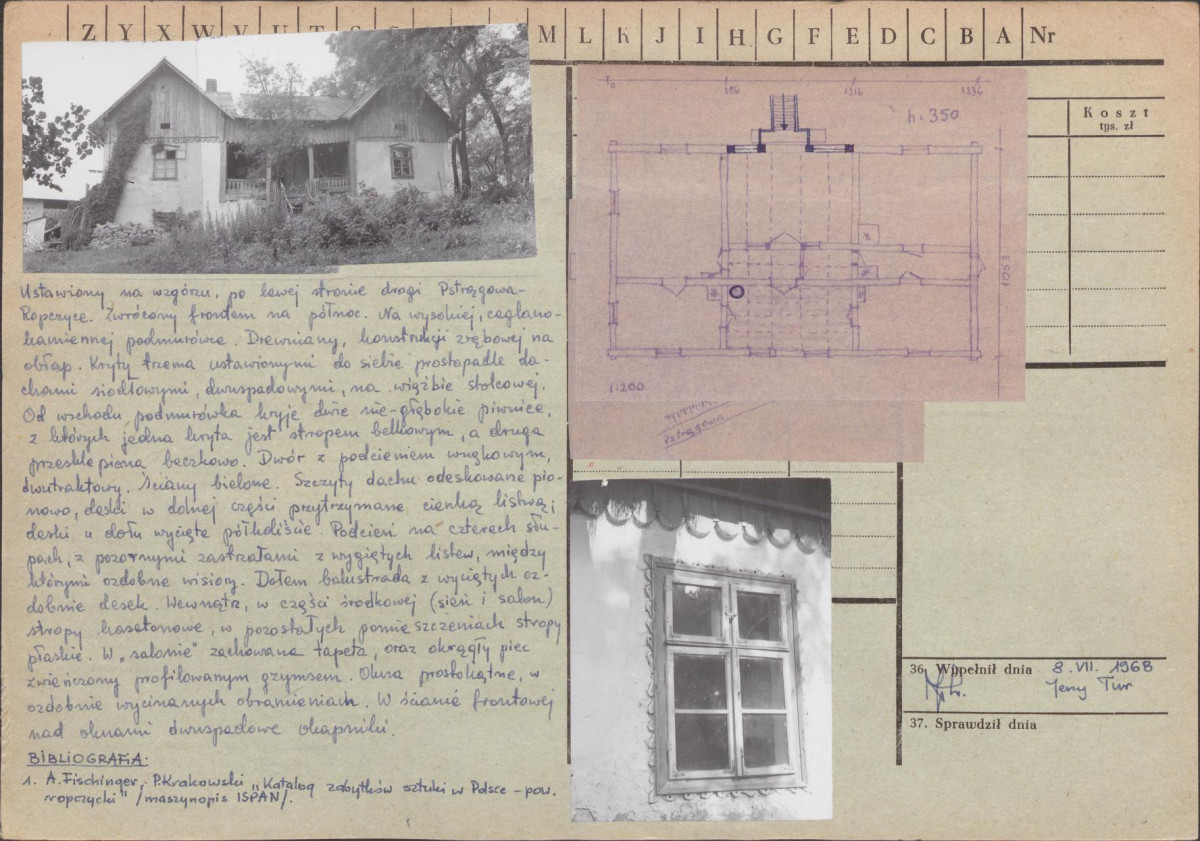 Z Y X W V U T S M L K J I H G F E D C B A Nr
Koszt
tys. zł
386
1216
1236
h. 350
1053
1:200
Pstrągowa
Ustawiony na wzgórzu, po lewej stronie drogi Pstrągowa-
Ropczyce. Zwrócony frontem na północ. Na wysokiej, ceglano-
kamiennej podmurówce. Drewniany, konstrukcji zrębowej na
obłap. Kryty trzema ustawionymi do siebie prostopadle da-
chami siodłowymi, dwuspadowymi, na więźbie stolcowej.
Od wschodu podmurówka kryje dwie nie-głębokie piwnice,
z których jedna kryta jest stropem belkowym, a druga
przesklepiona beczkowo. Dwór z podcieniem wnękowym,
dwutraktowy. Ściany bielone. Szczyty dachu odeskowane pio-
nowo, deski w dolnej części przytrzymane cienką listwą i
deski u dołu wycięte półkoliście. Podcień na czterech słu-
pach, z pozornymi zastrzałami z wygiętych listew, między
którymi ozdobne wisiory. Dołem balustrada z wyciętych oz-
dobnie desek. Wewnątrz, w części środkowej (sień i salon)
stropy kasetonowe, w pozostałych pomieszczeniach stropy
płaskie. W „salonie" zachowana tapeta, oraz okrągły piec
zwieńczony profilowanym gzymsem. Okna prostokątne, w
ozdobnie wycinanych obramieniach. W ścianie frontowej
nad oknami dwuspadowe okapniki.
BIBLIOGRAFIA:
1. A. Fischinger, P. Krakowski „Katalog zabytków sztuki w Polsce - pow.
ropczycki" /maszynopis ISPAN/.
36. Wypełnił dnia 8. VII. 1968
Jerzy Tur
37. Sprawdził dnia